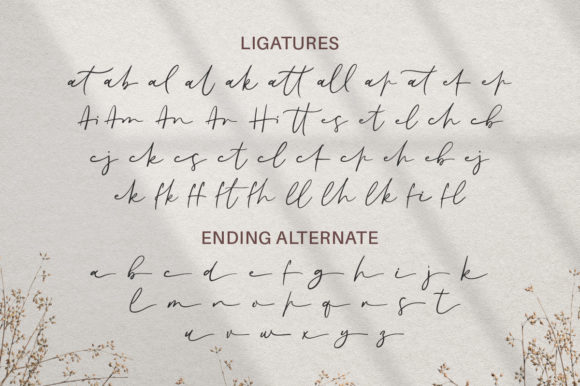 LIGATURES
at ab al al ak att all ap at ef ep
Ai Am An An Hi tt es et el ch cb
cj ck cs ct cl cf cp eh eb ej
ek fk ff ft fh ll lh lk fi fl
ENDING ALTERNATE
a b c d e f g h i j k
l m n o p q r s t
u v w x y z